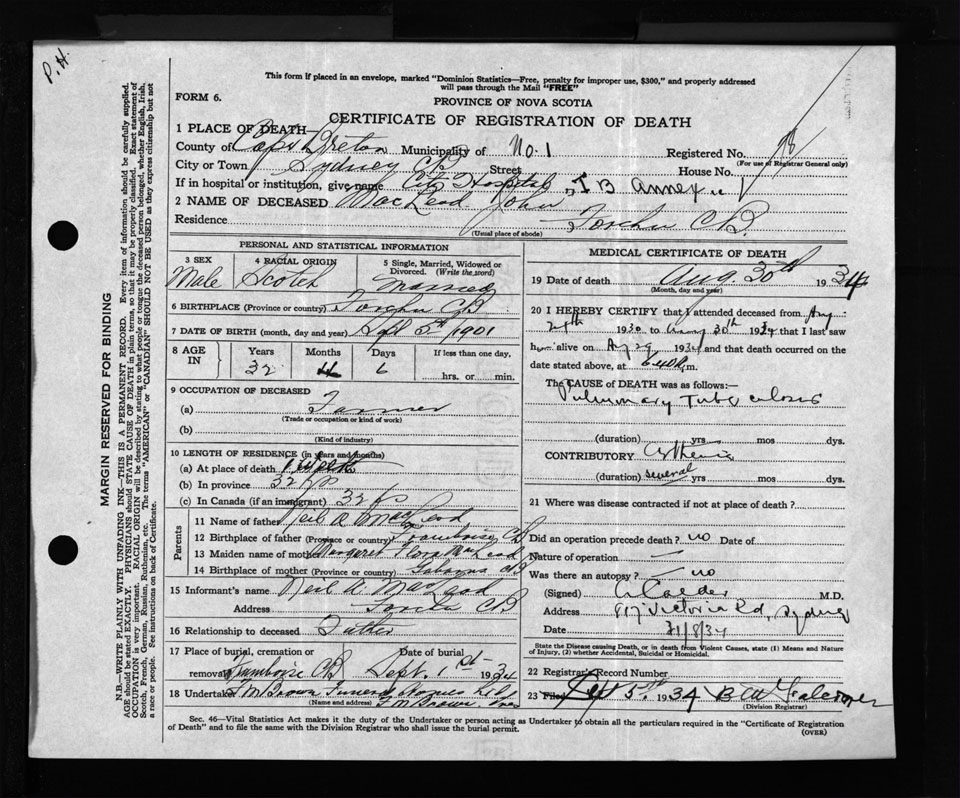 P. H.
This form if placed in an envelope, marked "Dominion Statistics—Free, penalty for improper use, $300," and properly addressed
will pass through the Mail "FREE"
FORM 6.
PROVINCE OF NOVA SCOTIA
CERTIFICATE OF REGISTRATION OF DEATH
1 PLACE OF DEATH—
County of Cape Breton Municipality of No. 1 Registered No.
(For use of Registrar General only)
City or Town Sydney CB Street House No.
If in hospital or institution, give name City Hospital, T B annex
2 NAME OF DECEASED MacLeod John
Residence Forchu CB.
(Usual place of abode)
PERSONAL AND STATISTICAL INFORMATION
3 SEX 4 RACIAL ORIGIN 5 Single, Married, Widowed or Divorced. (Write the word)
Male Scotch Married
6 BIRTHPLACE (Province or country) Forchu CB
7 DATE OF BIRTH (month, day and year) Sept 5th 1901
8 AGE IN Years Months Days If less than one day,
32 6 hrs. or min.
9 OCCUPATION OF DECEASED
(a) Farmer
(Trade or occupation or kind of work)
(b)
(Kind of industry)
10 LENGTH OF RESIDENCE (in years and months)
(a) At place of death 1 week
(b) In province 32 yrs
(c) In Canada (if an immigrant) 32 yrs
Parents
11 Name of father Neil A MacLeod
12 Birthplace of father (Province or country) Framboise CB
13 Maiden name of mother Margaret Flora MacLeod
14 Birthplace of mother (Province or country) Gabarus CB
15 Informant's name Neil A. MacLeod
Address Forchu CB
16 Relationship to deceased Father
17 Place of burial, cremation or removal Date of burial
Framboise CB Sept. 1st 1934
18 Undertaker T M Brown Funeral Homes Ltd
(Name and address) T M Brown, Pres
MEDICAL CERTIFICATE OF DEATH
19 Date of death Aug. 30th 1934
(Month, day and year)
20 I HEREBY CERTIFY that I attended deceased from Aug
1930 to Aug 30th 1934 that I last saw
him alive on Aug 29 1934 and that death occurred on the
date stated above, at m.
The CAUSE OF DEATH was as follows:—
Pulmonary Tuberculosis
(duration) yrs mos dys.
CONTRIBUTORY Asthenia
(duration) several yrs. mos dys.
21 Where was disease contracted if not at place of death?
Did an operation precede death? no Date of
Nature of operation
Was there an autopsy? no
(Signed) Calder M.D.
Address Victoria Rd, Sydney
Date 31/8/34
State the Disease causing Death, or in death from Violent Causes, state (1) Means and Nature of Injury, (2) whether Accidental, Suicidal or Homicidal.
22 Registrar's Record Number
23 Filed Sept 5th 1934
(Division Registrar)
Sec. 46—Vital Statistics Act makes it the duty of the Undertaker or person acting as Undertaker to obtain all the particulars required in the "Certificate of Registration
of Death" and to file the same with the Division Registrar who shall issue the burial permit.
(OVER)
MARGIN RESERVED FOR BINDING
N.B.—WRITE PLAINLY WITH UNFADING INK—THIS IS A PERMANENT RECORD. Every item of information should be carefully supplied.
AGE should be stated EXACTLY. PHYSICIANS should STATE CAUSE OF DEATH in plain terms, so that it may be properly classified. Exact statement of
OCCUPATION is very important. RACIAL ORIGIN will be described by stating to what people or tongue the deceased person belonged, whether English, Irish,
Scotch, French, German, Russian, Ruthenian, etc. The terms "AMERICAN" or "CANADIAN" SHOULD NOT BE USED as they express citizenship but not
a race or people. See instructions on back of Certificate.